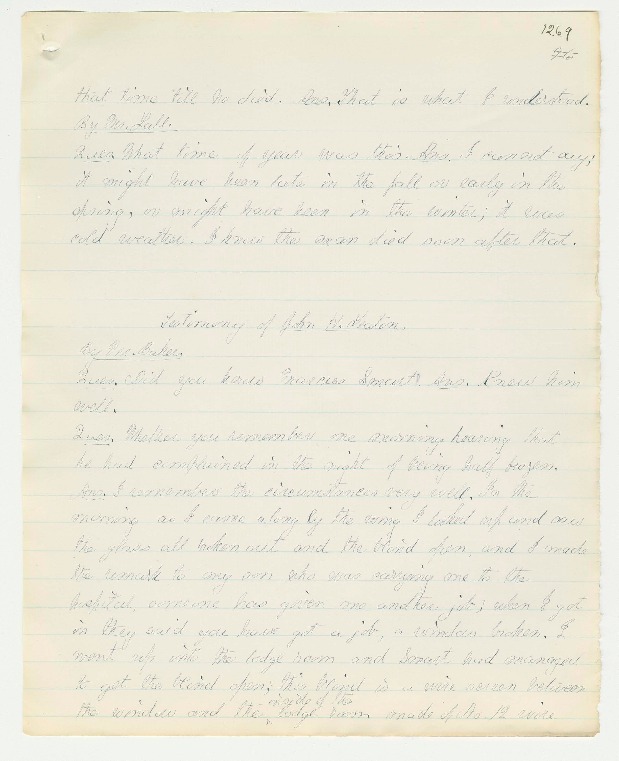 1269
that time till he died. Ans. That is what I understood.
By Mr. Hall.
Ques. What time of year was this. Ans. I cannot say;
it might have been late in the fall or early in the
spring, or might have been in the winter; it was
cold weather. I know the man died soon after that.
Testimony of John W.
By Mr. Baker,
Ques. Did you know Smart. Ans. Knew him
well.
Ques. Whether you remember one morning hearing that
he had complained in the night of being half frozen.
Ans. I remember the circumstances very well. In the
morning as I came along by the wing I looked up and saw
the glass all broken out and the blind open, and I made
the remark to my son who was carrying me to the
hospital, someone has given me another job; when I got
in they said you have got a job, a window broken. I
went up into the lodge room and Smart had managed
to get the blind open; this blind is a wire screen between
the window and the inside of the lodge room made of No. 12 wire